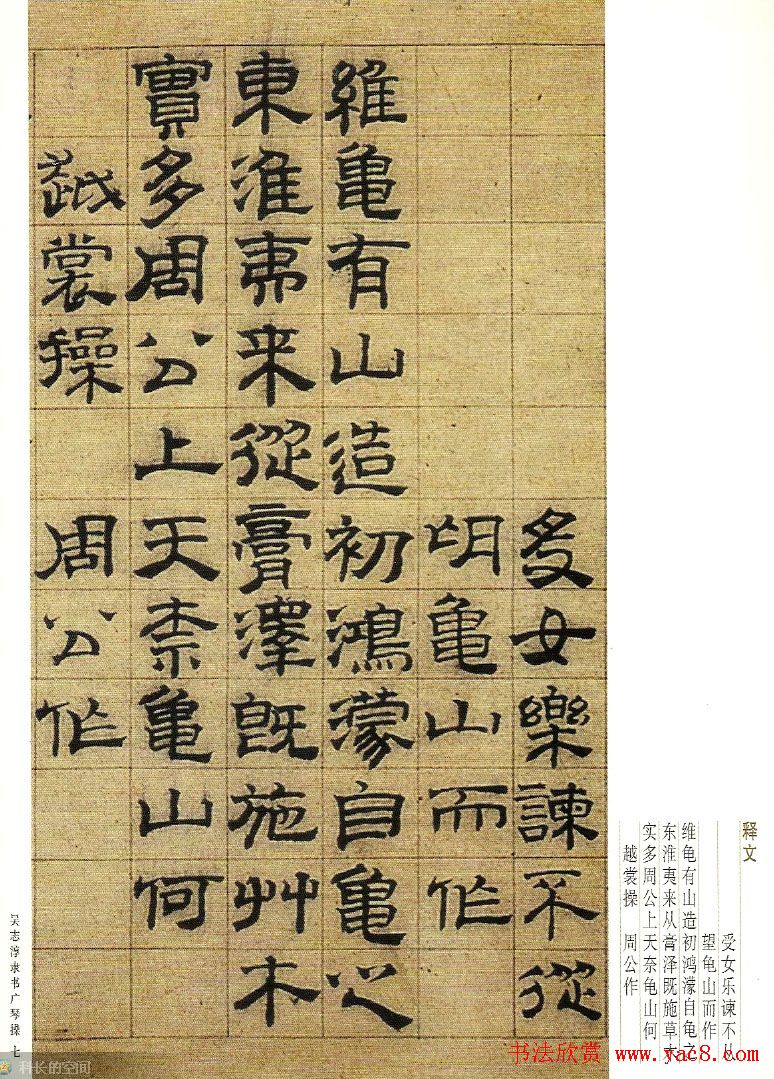 受女樂諫不從
望龜山而作
維龜有山造初鴻濛自龜之
東淮夷来從膏澤旣施艸木
實多周公上天柰龜山何
越裳操 周公作
释文
受女乐谏不从
望龟山而作
维龟有山造初鸿濛自龟之
东淮夷来从膏泽既施草木
实多周公上天奈龟山何
越裳操 周公作
吴志淳隶书广琴操 七
科长的空间
书法欣赏 www.yac8.com